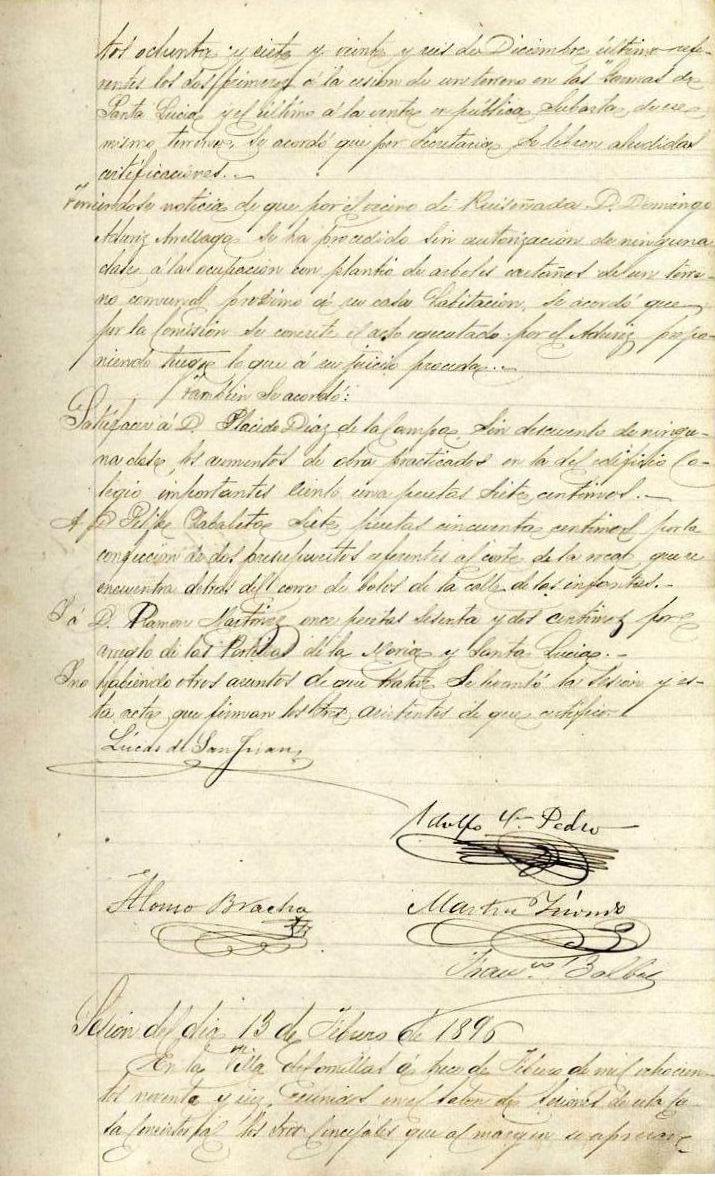 tos ochenta y siete y veinte y seis de Diciembre último refe-
rentes los dos primeros á la cesion de un terreno en las Lomas de
Santa Lucia y el último á la venta en pública subasta de ese
mismo terreno, se acordó que por Secretaria se libren aludidas
certificaciones.-
Teniéndose noticia de que por el vecino de Ruiseñada D. Domingo
Aduriz Arellaga se ha procedido sin autorizacion de ninguna
clase á la ocupacion con plantio de arboles castaños de un terre-
no comunal proximo á su casa habitacion, se acordó que
por la Comision se concrete el acto ejecutado por el Aduriz propo-
niendo luego lo que á su juicio proceda.-
Tambien se acordó:
Satisfacer á D. Placido Diaz de la Campa, sin descuento de ningu-
na clase, los aumentos de obra practicados en la del edificio Co-
legio importantes ciento una pesetas siete centimos.-
A D. Felipe Zabaleta siete pesetas cincuenta centimos por la
confeccion de dos presupuestos referentes al corte de la nogal que se
encuentra detrás del corro de bolos de la calle de los infantes.-
Y á D. Ramon Martinez once pesetas sesenta y dos centimos por
arreglo de las Portillas de la Moria y Santa Lucia.-
Y no habiendo otros asuntos de que tratar se levantó la sesion y es-
ta acta que firman los Sres asistentes de que certifico.
Lucas de San Juan
Adolfo Pedro
Alonso Bracho
Martin
Franco
Sesion del dia 13 de Febrero de 1896
En la Villa de Comillas á trece de Febrero de mil ochocien-
tos noventa y seis, reunidos en el salon de sesiones de esta Ca-
sa Consistorial los Sres Concejales que al margen se